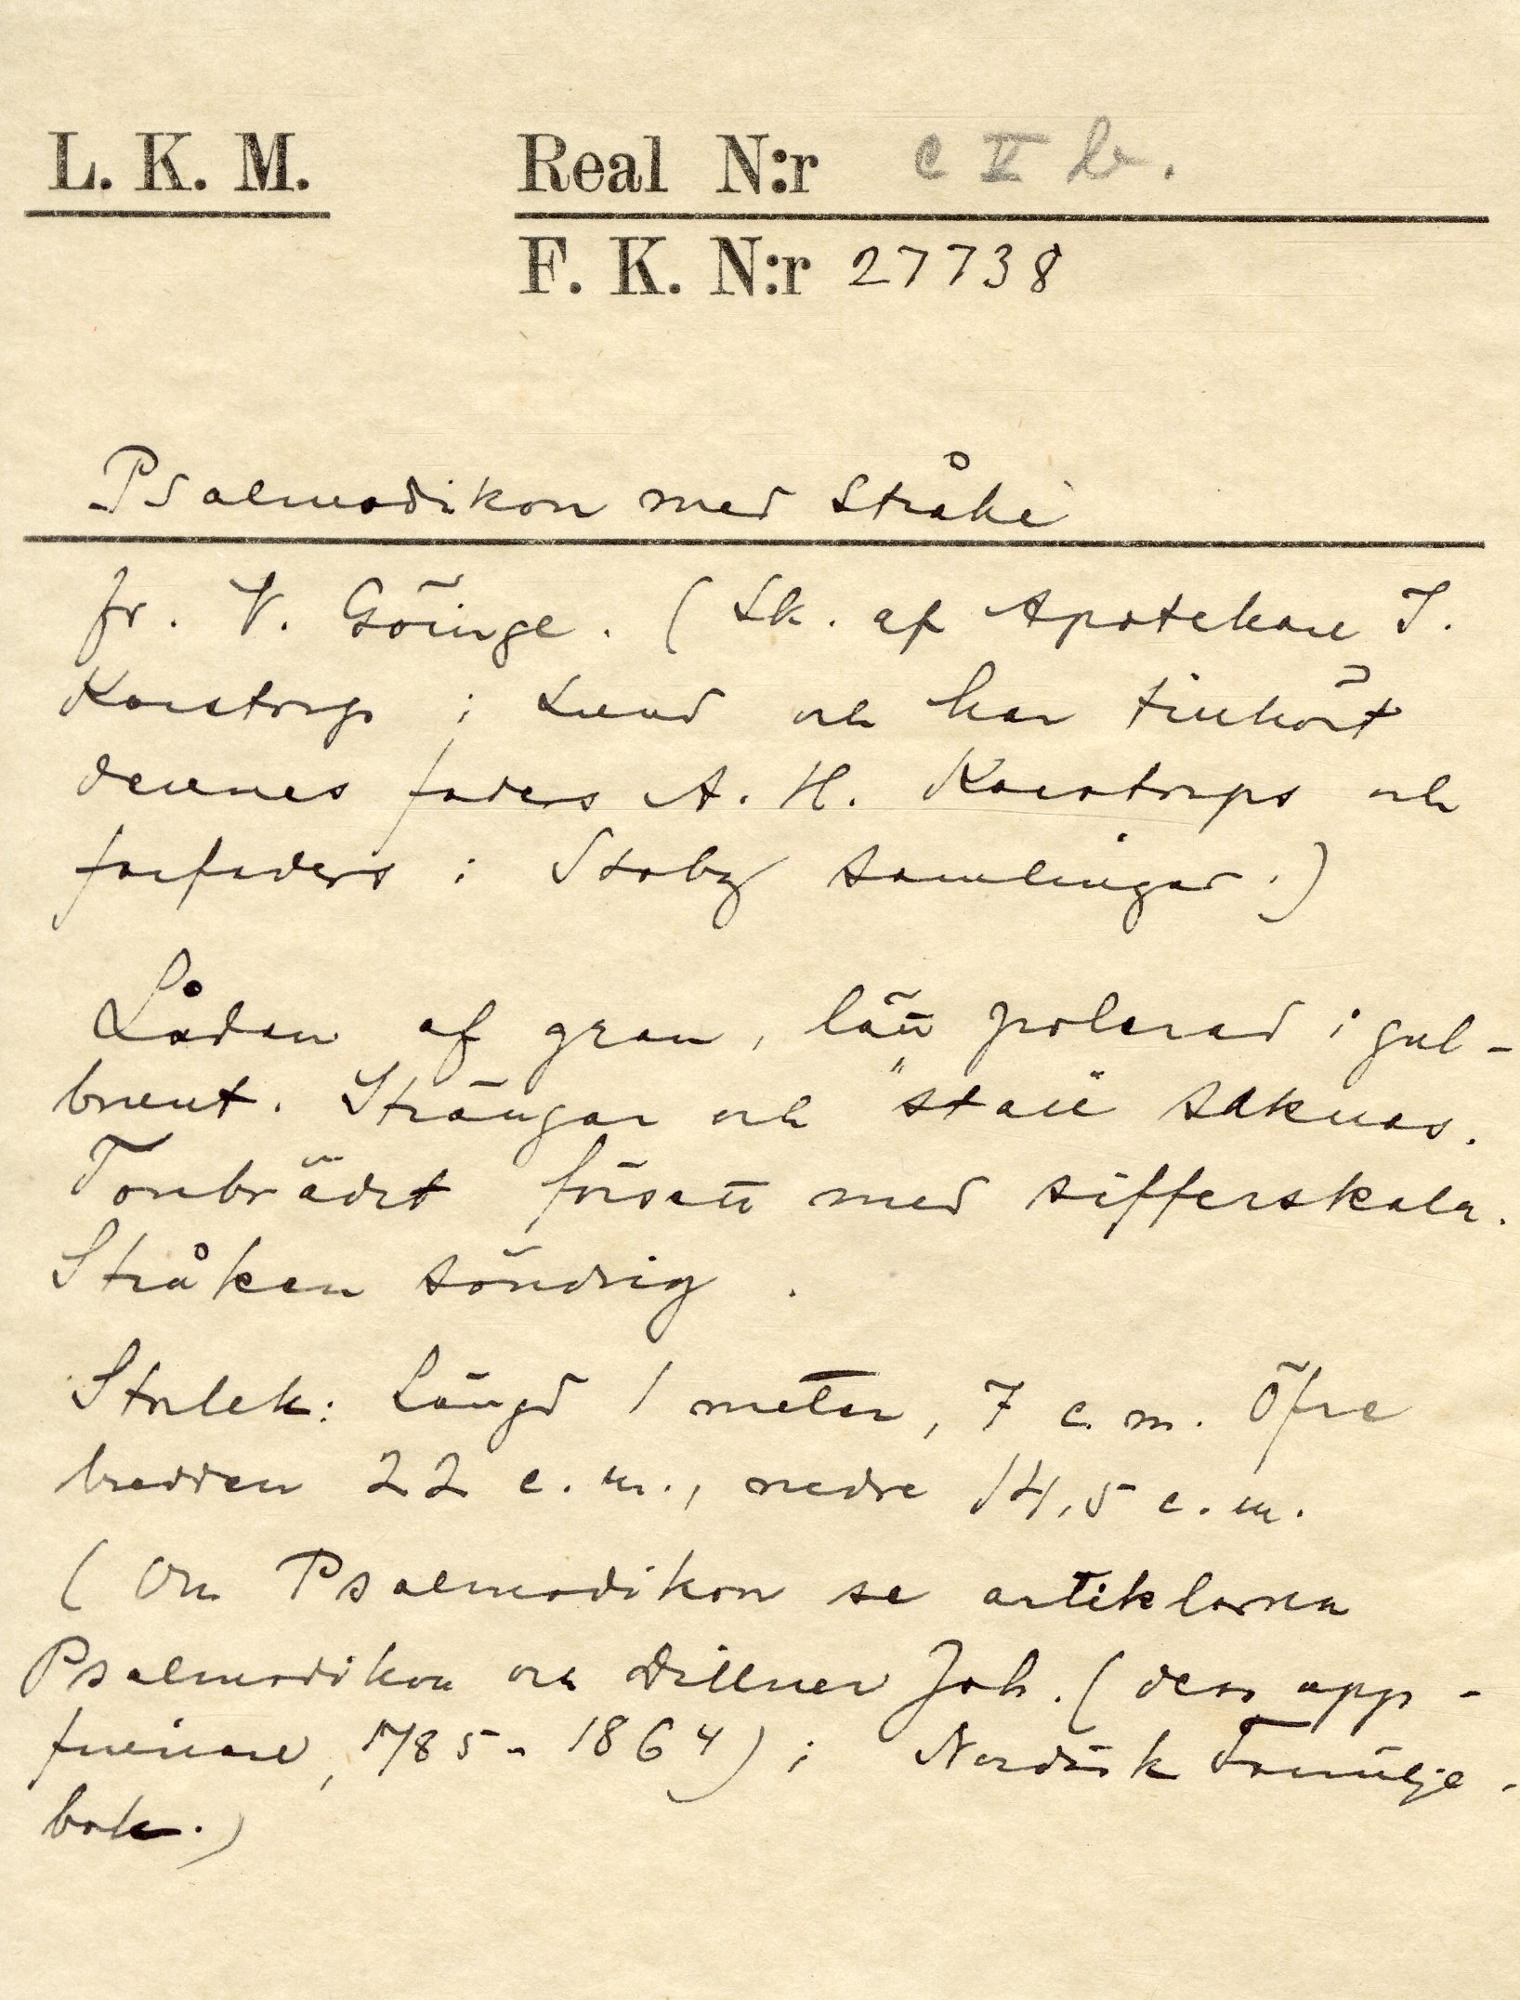 L. K. M. Real N:r C V b.
F. K. N:r 27738
Psalmodikon med stråke
fr. V. Göinge. (Sk. af Apotekare T.
Karstrup i Lund och har tillhört
dennes faders A. H. Karstrups och
farfaders i Stoby samlingar.)
Lådan af gran, lätt polerad i gul-
brunt. Strängar och "stall" saknas.
Tonbrädet försatt med sifferskala.
Stråken söndrig.
Storlek: Längd 1 meter, 7 c.m. Öfre
bredden 22 c.m., nedre 14,5 c.m.
(Om Psalmodikon se artiklarna
Psalmodikon och Dillner Joh. (dess upp-
finnare, 1785-1864) i Nordisk Familje-
bok.)